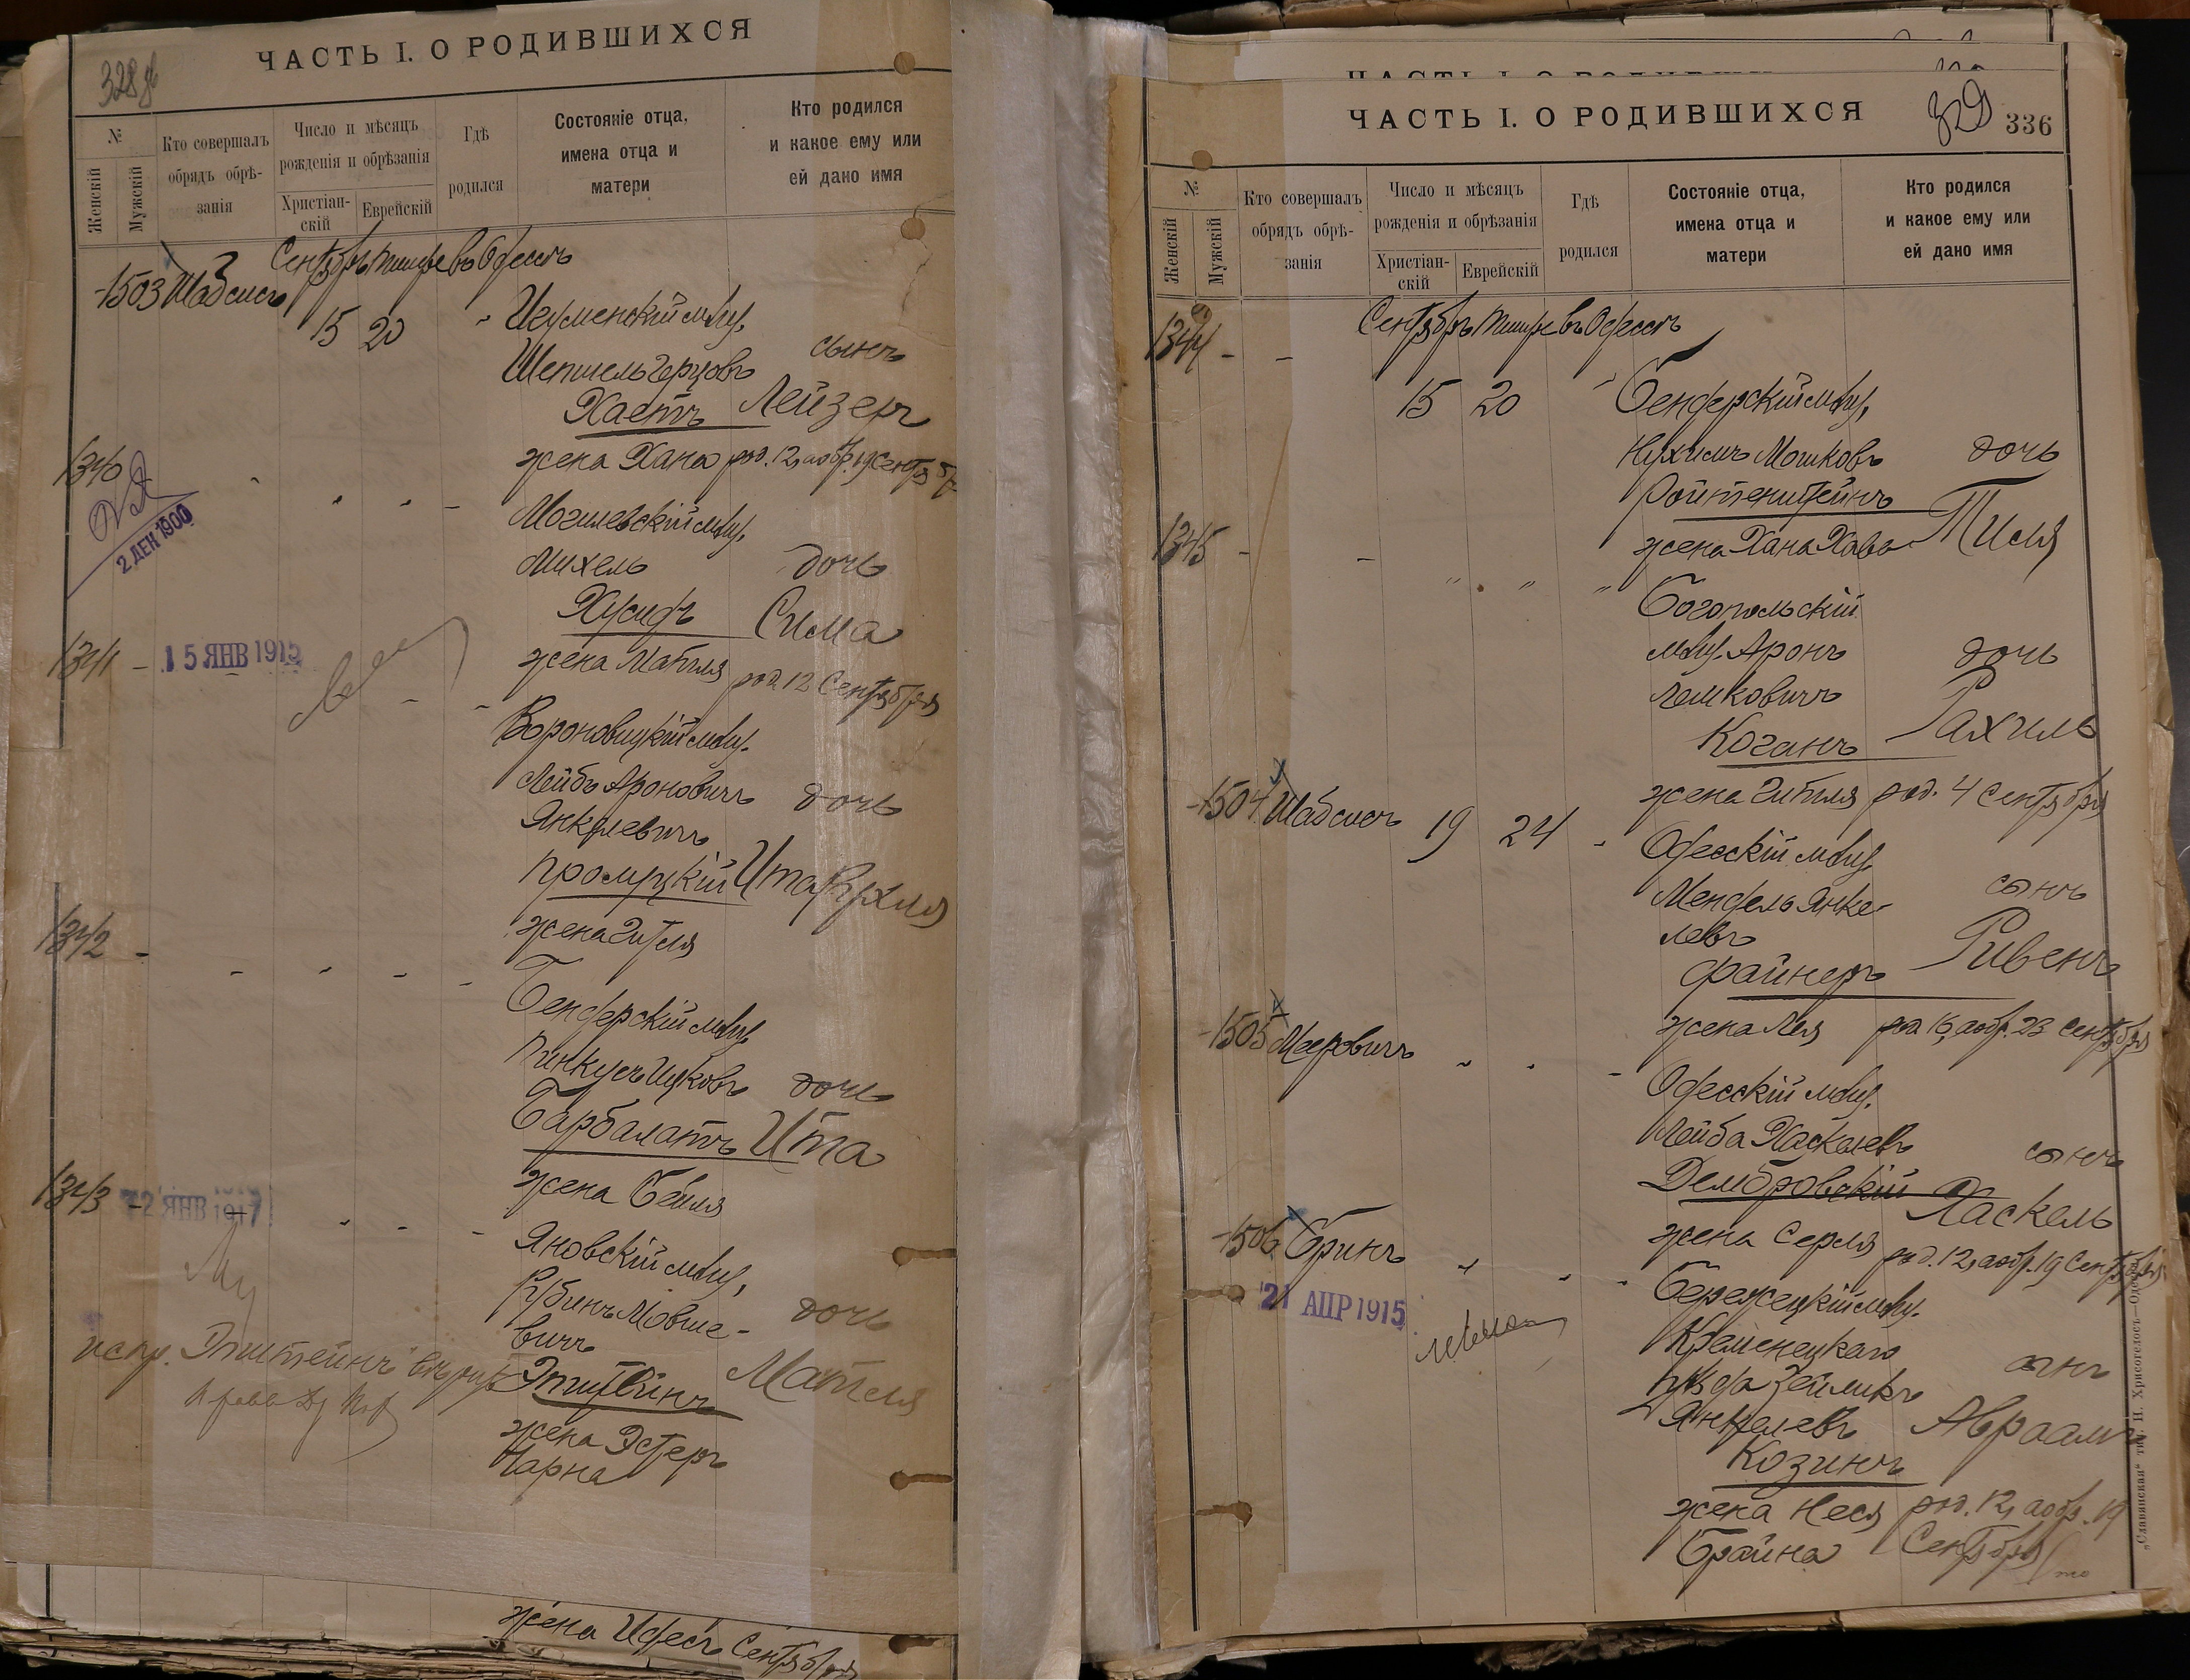 ЧАСТЬ I. О РОДИВШИХСЯ
328 об
№
Женскій
Мужскій
Кто совершалъ
обрядъ обрѣ-
занія
Число и мѣсяцъ
рожденія и обрѣзанія
Христіан-
скій
Еврейскій
Гдѣ
родился
Состояніе отца,
имена отца и
матери
Кто родился
и какое ему или
ей дано имя
Сентябрь Тишре въ Одессѣ
1503 Шабсисъ
15 20 Игуменскій мѣщ.
Шепшель Герцовъ сынъ
Хаетъ Лейзеръ
жена Хана род. 12, а обр. 19 Сентяб
1340
2 ДЕК 1900
Могилевскій мѣщ.
Михель дочь
Хусидъ Сима
жена Матля род. 12 Сентября
1341 - 15 ЯНВ 1915
Вороновицкій мѣщ.
Лейбъ Ароновичъ дочь
Янкелевичъ
Ита Рухля
жена Гитля
1342 -
Бендерскій мѣщ.
Пинкусъ Ицковъ дочь
Барбалатъ Ита
жена Бейля
1343 - 2 ЯНВ 1917
Яновскій мѣщ.
Рубинъ Мовше- дочь
вичъ
Эпштейнъ Матля
испр. Эпштейнъ
жена Эстеръ
Чарна
жена Идесъ Сентября
ЧАСТЬ I. О РОДИВШИХСЯ
329
336
№
Женскій
Мужскій
Кто совершалъ
обрядъ обрѣ-
занія
Число и мѣсяцъ
рожденія и обрѣзанія
Христіан-
скій
Еврейскій
Гдѣ
родился
Состояніе отца,
имена отца и
матери
Кто родился
и какое ему или
ей дано имя
1344 - - Сентябрь Тишре въ Одессѣ
15 20 Бендерскій мѣщ.
Нухимъ Мошковъ дочь
Ройтенштейнъ
жена Хана Хава Тиля
1345 - -
Богопольскій
мѣщ. Аронъ дочь
Лейковичъ
Коганъ Рахиль
жена Гитля род. 4 Сентября
1504 Шабсисъ 19 24 - Одесскій мѣщ.
Мендель Янке- сынъ
левъ
Файнеръ Рувенъ
жена Лея род. 16, а обр. 23 Сентября
1505 Мееровичъ
Одесскій мѣщ.
Лейба Хаскелевъ сынъ
Дембровскій Хаскель
жена Серля род. 12, а обр. 19 Сентября
1506 Бринъ
21 АПР 1915
Бережецкій мѣщ.
Кременецкаго
уѣзда Зейликъ сынъ
Янкелевъ Авраамъ
Козинъ
жена Неся род. 12, а обр. 19
Брайна Сентября
„Славянская“ тип. Н. Хрисогелосъ—Одесса